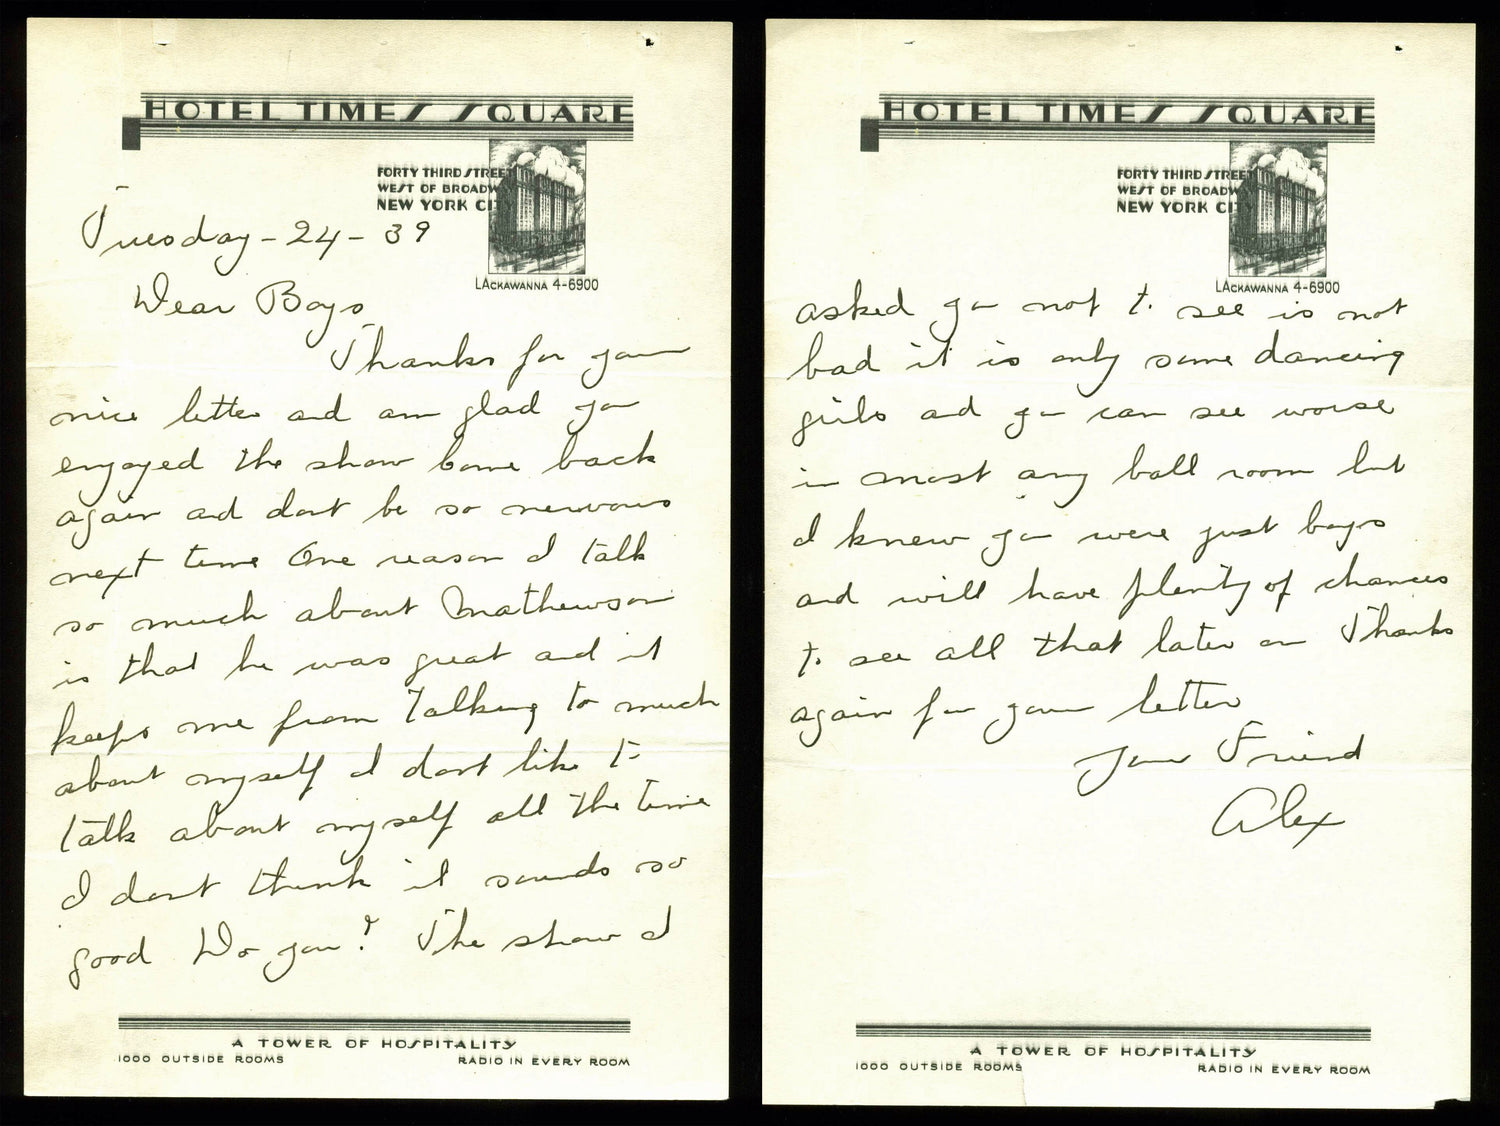 HOTEL TIMES SQUARE
FORTY THIRD STREET
WEST OF BROADW
NEW YORK CITY
LACKAWANNA 4-6900
Tuesday - 24 - 39
Dear Boys
Thanks for your
nice letter and am glad you
enjoyed the show Come back
again and dont be so nervous
next time One reason I talk
so much about Mathewson
is that he was great and it
keeps me from talking to much
about myself I dont like to
talk about myself all the time
I dont think it sounds so
good Do you? The show I
A TOWER OF HOSPITALITY
1000 OUTSIDE ROOMS RADIO IN EVERY ROOM
HOTEL TIMES SQUARE
FORTY THIRD STREET
WEST OF BROADW
NEW YORK CITY
LACKAWANNA 4-6900
asked you not to see is not
bad it is only some dancing
girls and you can see worse
in most any ball room but
I knew you were just boys
and will have plenty of chances
to see all that later on Thanks
again for your letter
Your Friend
Alex
A TOWER OF HOSPITALITY
1000 OUTSIDE ROOMS RADIO IN EVERY ROOM